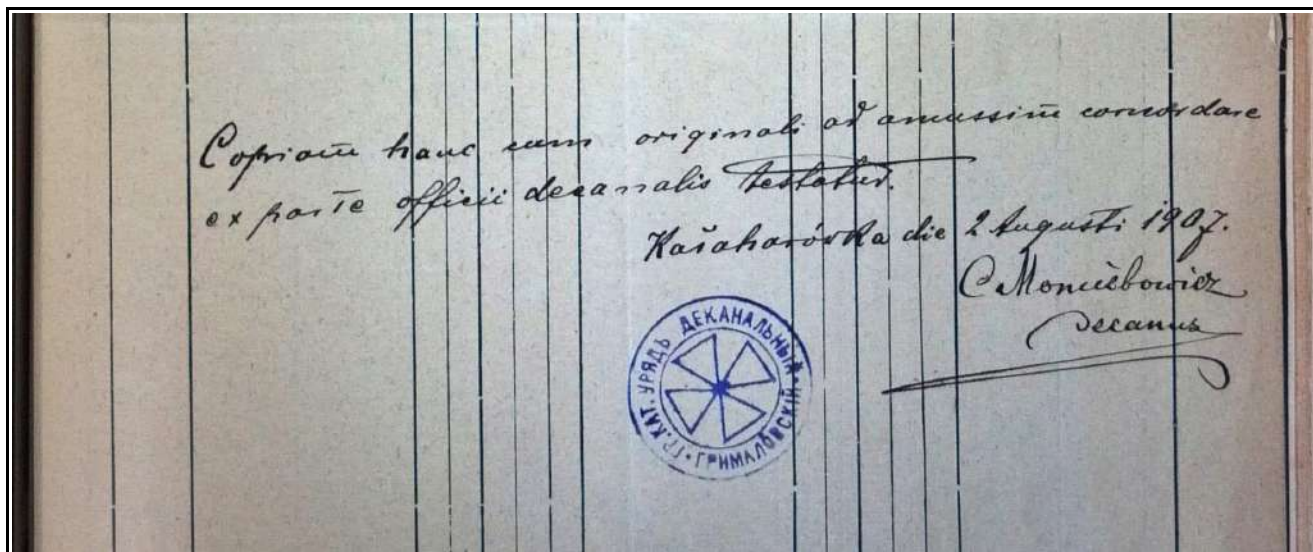 Copiam hanc cum originali ad amussim concordare
ex parte officii decanalis testatur.
Kašaharówka die 2 Augusti 1907.
Decanus
ГР. КАТ. УРЯДЪ ДЕКАНАЛЬНЫЙ
ГРИМАЛОВСКІЙ